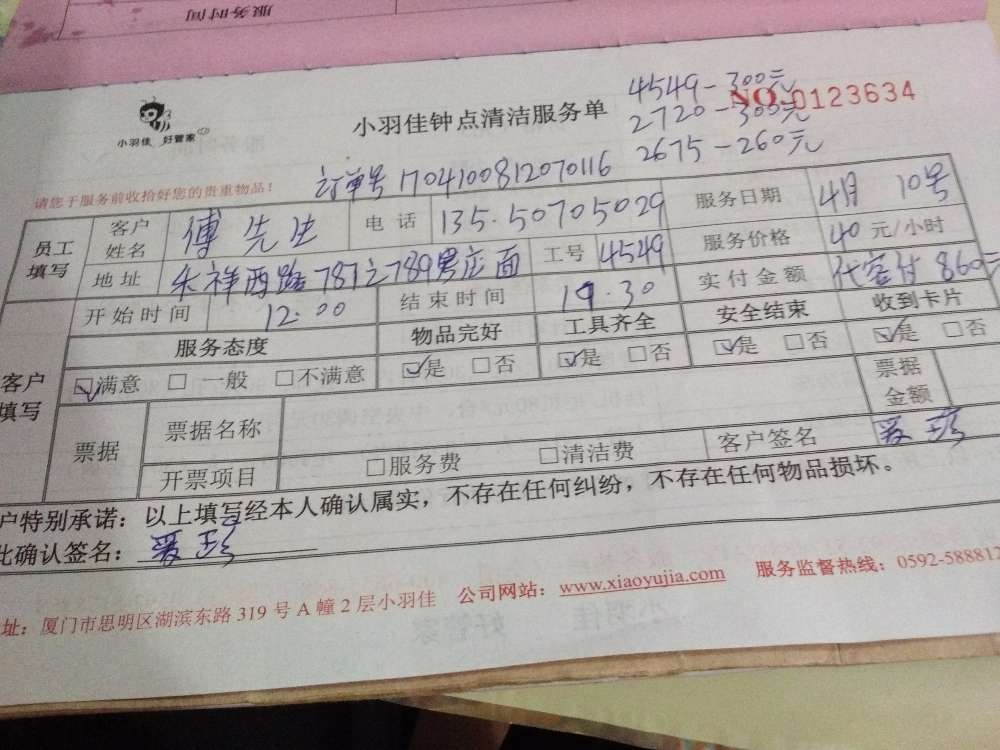 服务时间
小羽佳 好管家
小羽佳钟点清洁服务单
NO.0123634
4549-300元
2720-300元
2675-260元
请您于服务前收拾好您的贵重物品!
订单号 1704100812070116
员工填写 客户姓名 傅先生 电话 135.50705029 服务日期 4月 10号
地址 乐祥西路787之789号店面 工号 4549 服务价格 40元/小时
开始时间 12:00 结束时间 19.30 实付金额 代客付860元
客户填写 服务态度 物品完好 工具齐全 安全结束 收到卡片
☑满意 □一般 □不满意 ☑是 □否 ☑是 □否 ☑是 □否 ☑是 □否
票据 票据名称 票据金额
开票项目 □服务费 □清洁费 客户签名
户特别承诺:以上填写经本人确认属实,不存在任何纠纷,不存在任何物品损坏。
此确认签名:
址:厦门市思明区湖滨东路319号A幢2层小羽佳 公司网站:www.xiaoyujia.com 服务监督热线:0592-588812